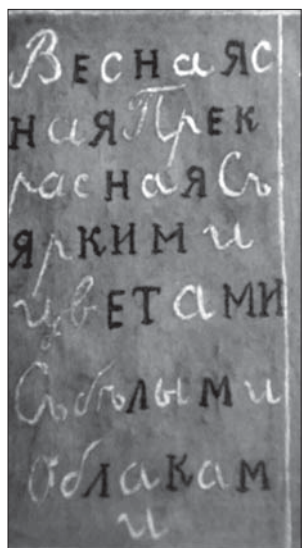 Весная яс
ная Прек
расная Съ
яркими
цветами
Съ бѣлыми
облакам
и